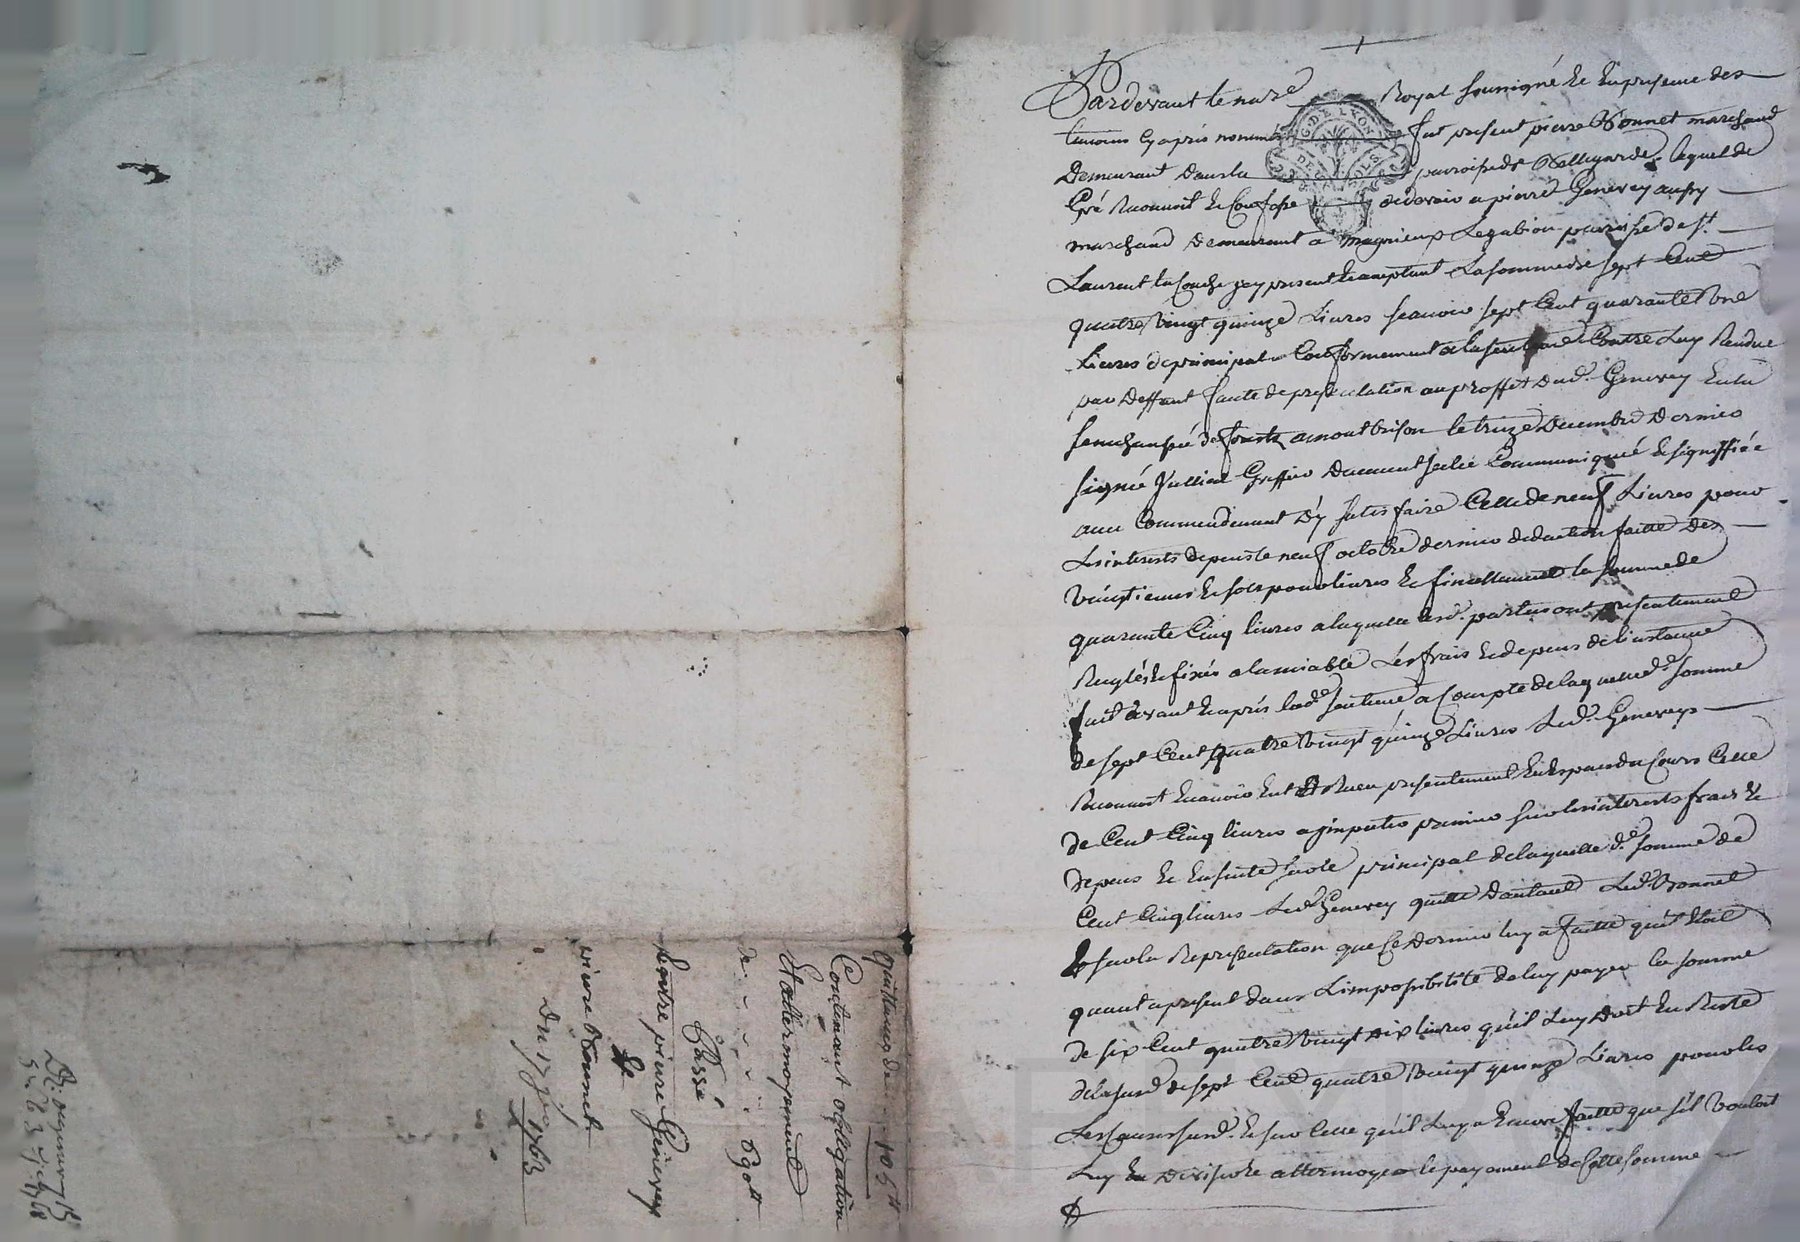 Pardevant le no.re Royal soussigné et en presence des
temoins cy aprés nommés fut present pierre Bonnet marchand
demeurant dans la parroisse de Bellegarde lequel de
Gré Reconnoit et Confesse debvoir a pierre Genevey aussy
marchand demeurant a magnieux le gabion parroisse de S.t
Laurent la Conche icy present et acceptant La somme de sept Cent
quatre Vingt quinze Livres scavoir sept Cent quarante Une
Livres de principal Conformement a la sentence Contre Luy Rendue
par deffaut faute de presentation au proffit dud. Genevey en la
senechaussée de forestz a montbrison le treize Decembre dernier
signé Jullien Greffier duement scelée Communiquée et signiffiée
avec Commendement d'y satisfaire Celle de neuf Livres pour
Les interests depuis le neuf octobre dernier deduction faitte des
Vingtiemes et sols pour livres et finallement la somme de
quarante Cinq livres a laquelle lesd. parties ont presentement
Reglés et fixés a lamiable Les frais et depens de l'instance
fait avant et aprés lad.e sentence a Compte de laquelle d.e somme
de sept Cent quatre Vingt quinze Livres led. Geneveys
Reconnoit en avoir eut et Receu presentement en Especes du Cours Celle
de Cent Cinq livres a jmputer premier sur les interests frais et
depens et ensuite sur le principal de laquelle d.e somme de
Cent Cinq livres led. Genevey quitte d'autant led. Bonnet
Et sur la Representation que Ce dernier luy a faitte qu'il Etoit
quant a present dans L'impossibilité de luy payer la somme
de six Cent quatre Vingt dix livres qu'il Luy doit En Reste
de la susd. de sept Cent quatre Vingt quinze Livres pour les
Causes susd. et sur Celle qu'il Luy a Encore faitte que s'il Vouloit
Luy En diviser et attermoyer le payement de Cette somme
G. DE LYON
DEUX SOLS
quittance de 105 tt
Contenant obligation
Et attermoyement
de 690 tt
Passé
Entre pierre Geneveys
Et
pierre Bonnet
Du 17 jer 1763